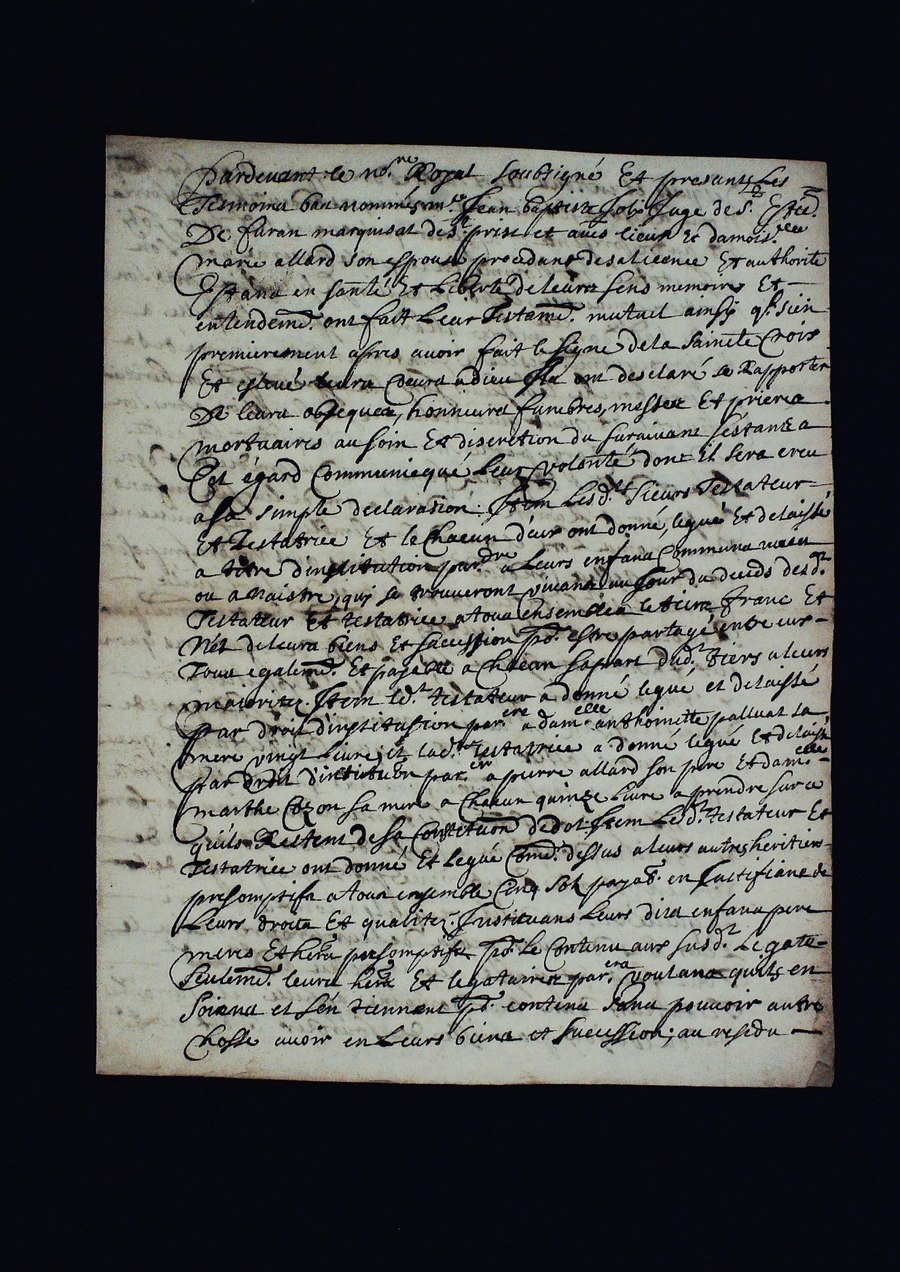 Pardevant le no.re Royal soubsigné Et presants Les
Tesmoins bas nommés m.e Jean baptiste Juge de S.t
De furan marquisat de S.t priest et autres lieux Et damois.elle
marie allard son espouse procedant de sa licence Et authorité
Estans en santé Et Liberté de leurs sens memoire Et
entendem.t ont fait Leur Testam.t mutuel ainsy q.l s'en
premierement apres avoir fait le signe de la Sainte Croix
Et eslevé leurs Coeurs a dieu Ils ont desclaré se Rapporter
De leurs obseques, honneurs funebres, messes Et prieres
mortuaires au soin Et discretion du survivant s'estants a
Cet égard Communicqué Leur volonté dont Il sera creu
a sa simple declaration. Item Lesd.ts sieurs Testateur
Et Testatrice Et le Chacun d'eux ont donné, legué Et delaissé
a titre d'institution par.dre a Leurs enfans Communs
ou a naistre, quy se trouveront vivans au Jour du deceds desd.ts
Testateur Et testatrice a tous ensemble le tiers franc Et
Net de leurs biens Et succession p.r estre partagé entre eux
Tous egalem.t Et payable a Chacun sa part dud.t tiers a leurs
majorité. Item led.t testateur a donné legué et delaissé
par droit d'institution par.ere a dam.elle anthoinette palluat sa
mere vingt Livres et lad.te testatrice a donné legué Et delaissé
par droit d'institution par.ere a pierre allard son pere Et dam.elle
marthe Cozon sa mere a Chacun quinze Livre a prendre sur ce
qui Restent de sa Constitution de dot. Item Led.t testateur Et
Testatrice ont donné Et Legué Com.e dessus a leurs autres heritiers
presomptifs a tous ensemble Cinq sols payab. en Justifiant de
Leurs droits Et qualitez. Instituans Leurs dits enfans pere
meres Et hers presomptifs p.r le Contenu aux susd.ts Legats
seulem.t leurs hers Et legataires par.ers voulans quils en
soient et s'en tiennent p.r contens sans pouvoir autre
Chosse avoir en Leurs biens et succession; au residu